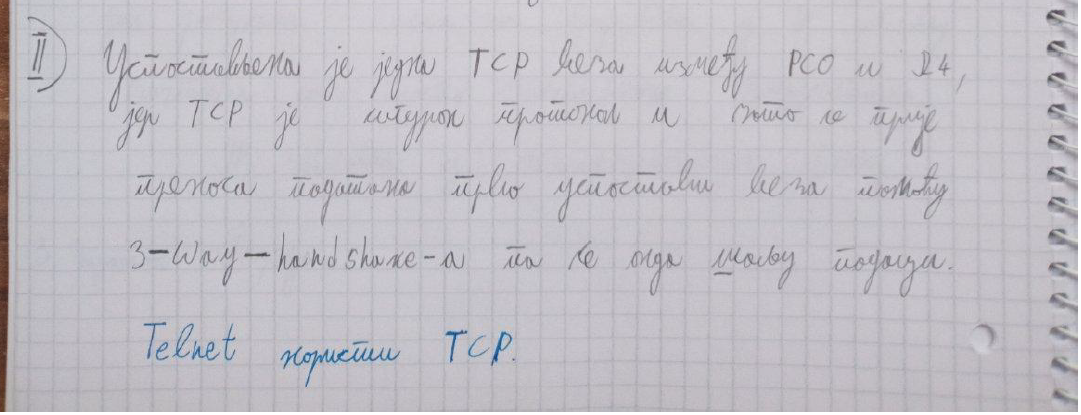 II) Успостављена је једна TCP веза између PC0 и R4,
јер TCP је сигуран протокол и зато се прије
преноса података прво успостави веза помоћу
3-Way-handshake-а па се онда шаљу подаци.
Telnet користи TCP.